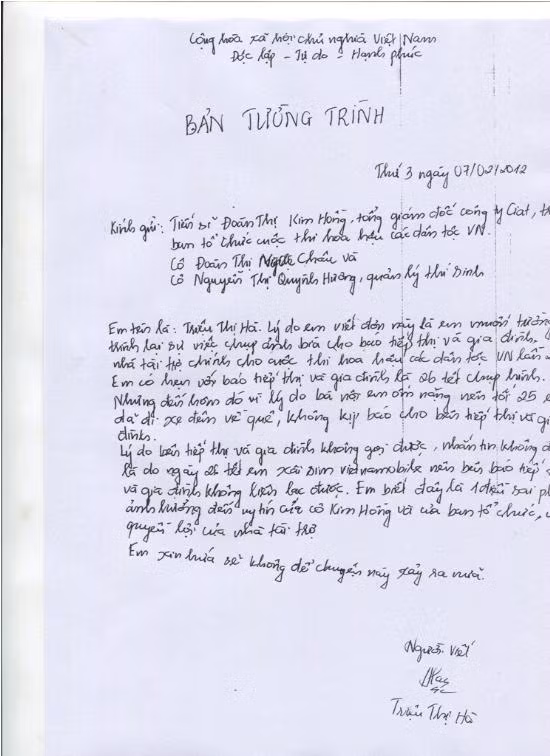 Cộng hòa xã hội chủ nghĩa Việt Nam
Độc lập - Tự do - Hạnh phúc
BẢN TƯỜNG TRÌNH
Thứ 3 ngày 07/02/2012
Kính gửi: Tiến sĩ Đoàn Thị Kim Hồng, tổng giám đốc công ty Ciat, tr
ban tổ chức cuộc thi hoa hậu các dân tộc VN.
Cô Đoàn Thị Ngọc Châu và
Cô Nguyễn Thị Quỳnh Hương, quản lý thí sinh
Em tên là: Triệu Thị Hà. Lý do em viết đơn này là em muốn tường
trình lại sự việc chụp ảnh bìa cho báo tiếp thị và gia đình,
nhà tài trợ chính cho cuộc thi hoa hậu các dân tộc VN lần
Em có hẹn với báo tiếp thị và gia đình là 26 tết chụp hình.
Nhưng đến hôm đó vì lý do bà nội em ốm nặng nên tối 25 e
đã đi xe đêm về quê, không kịp báo cho bên tiếp thị và gi
đình.
Lý do bên tiếp thị và gia đình không gọi được, nhắn tin không đ
là do ngày 26 tết em xài sim vietnamobile nên bên báo tiếp
và gia đình không liên lạc được. Em biết đây là 1 điều sai ph
ảnh hưởng đến uy tín của cô Kim Hồng và của ban tổ chức, v
quyền lợi của nhà tài trợ
Em xin hứa sẽ không để chuyện này xảy ra nữa.
Người viết
Triệu Thị Hà